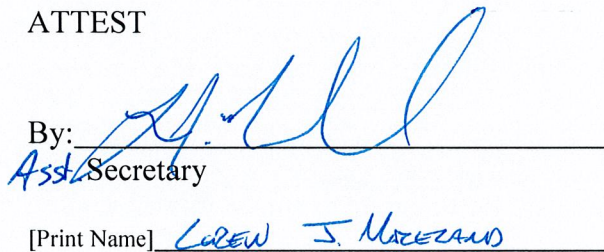 ATTEST
By:
Asst. Secretary
[Print Name] LOREN J. MORELAND